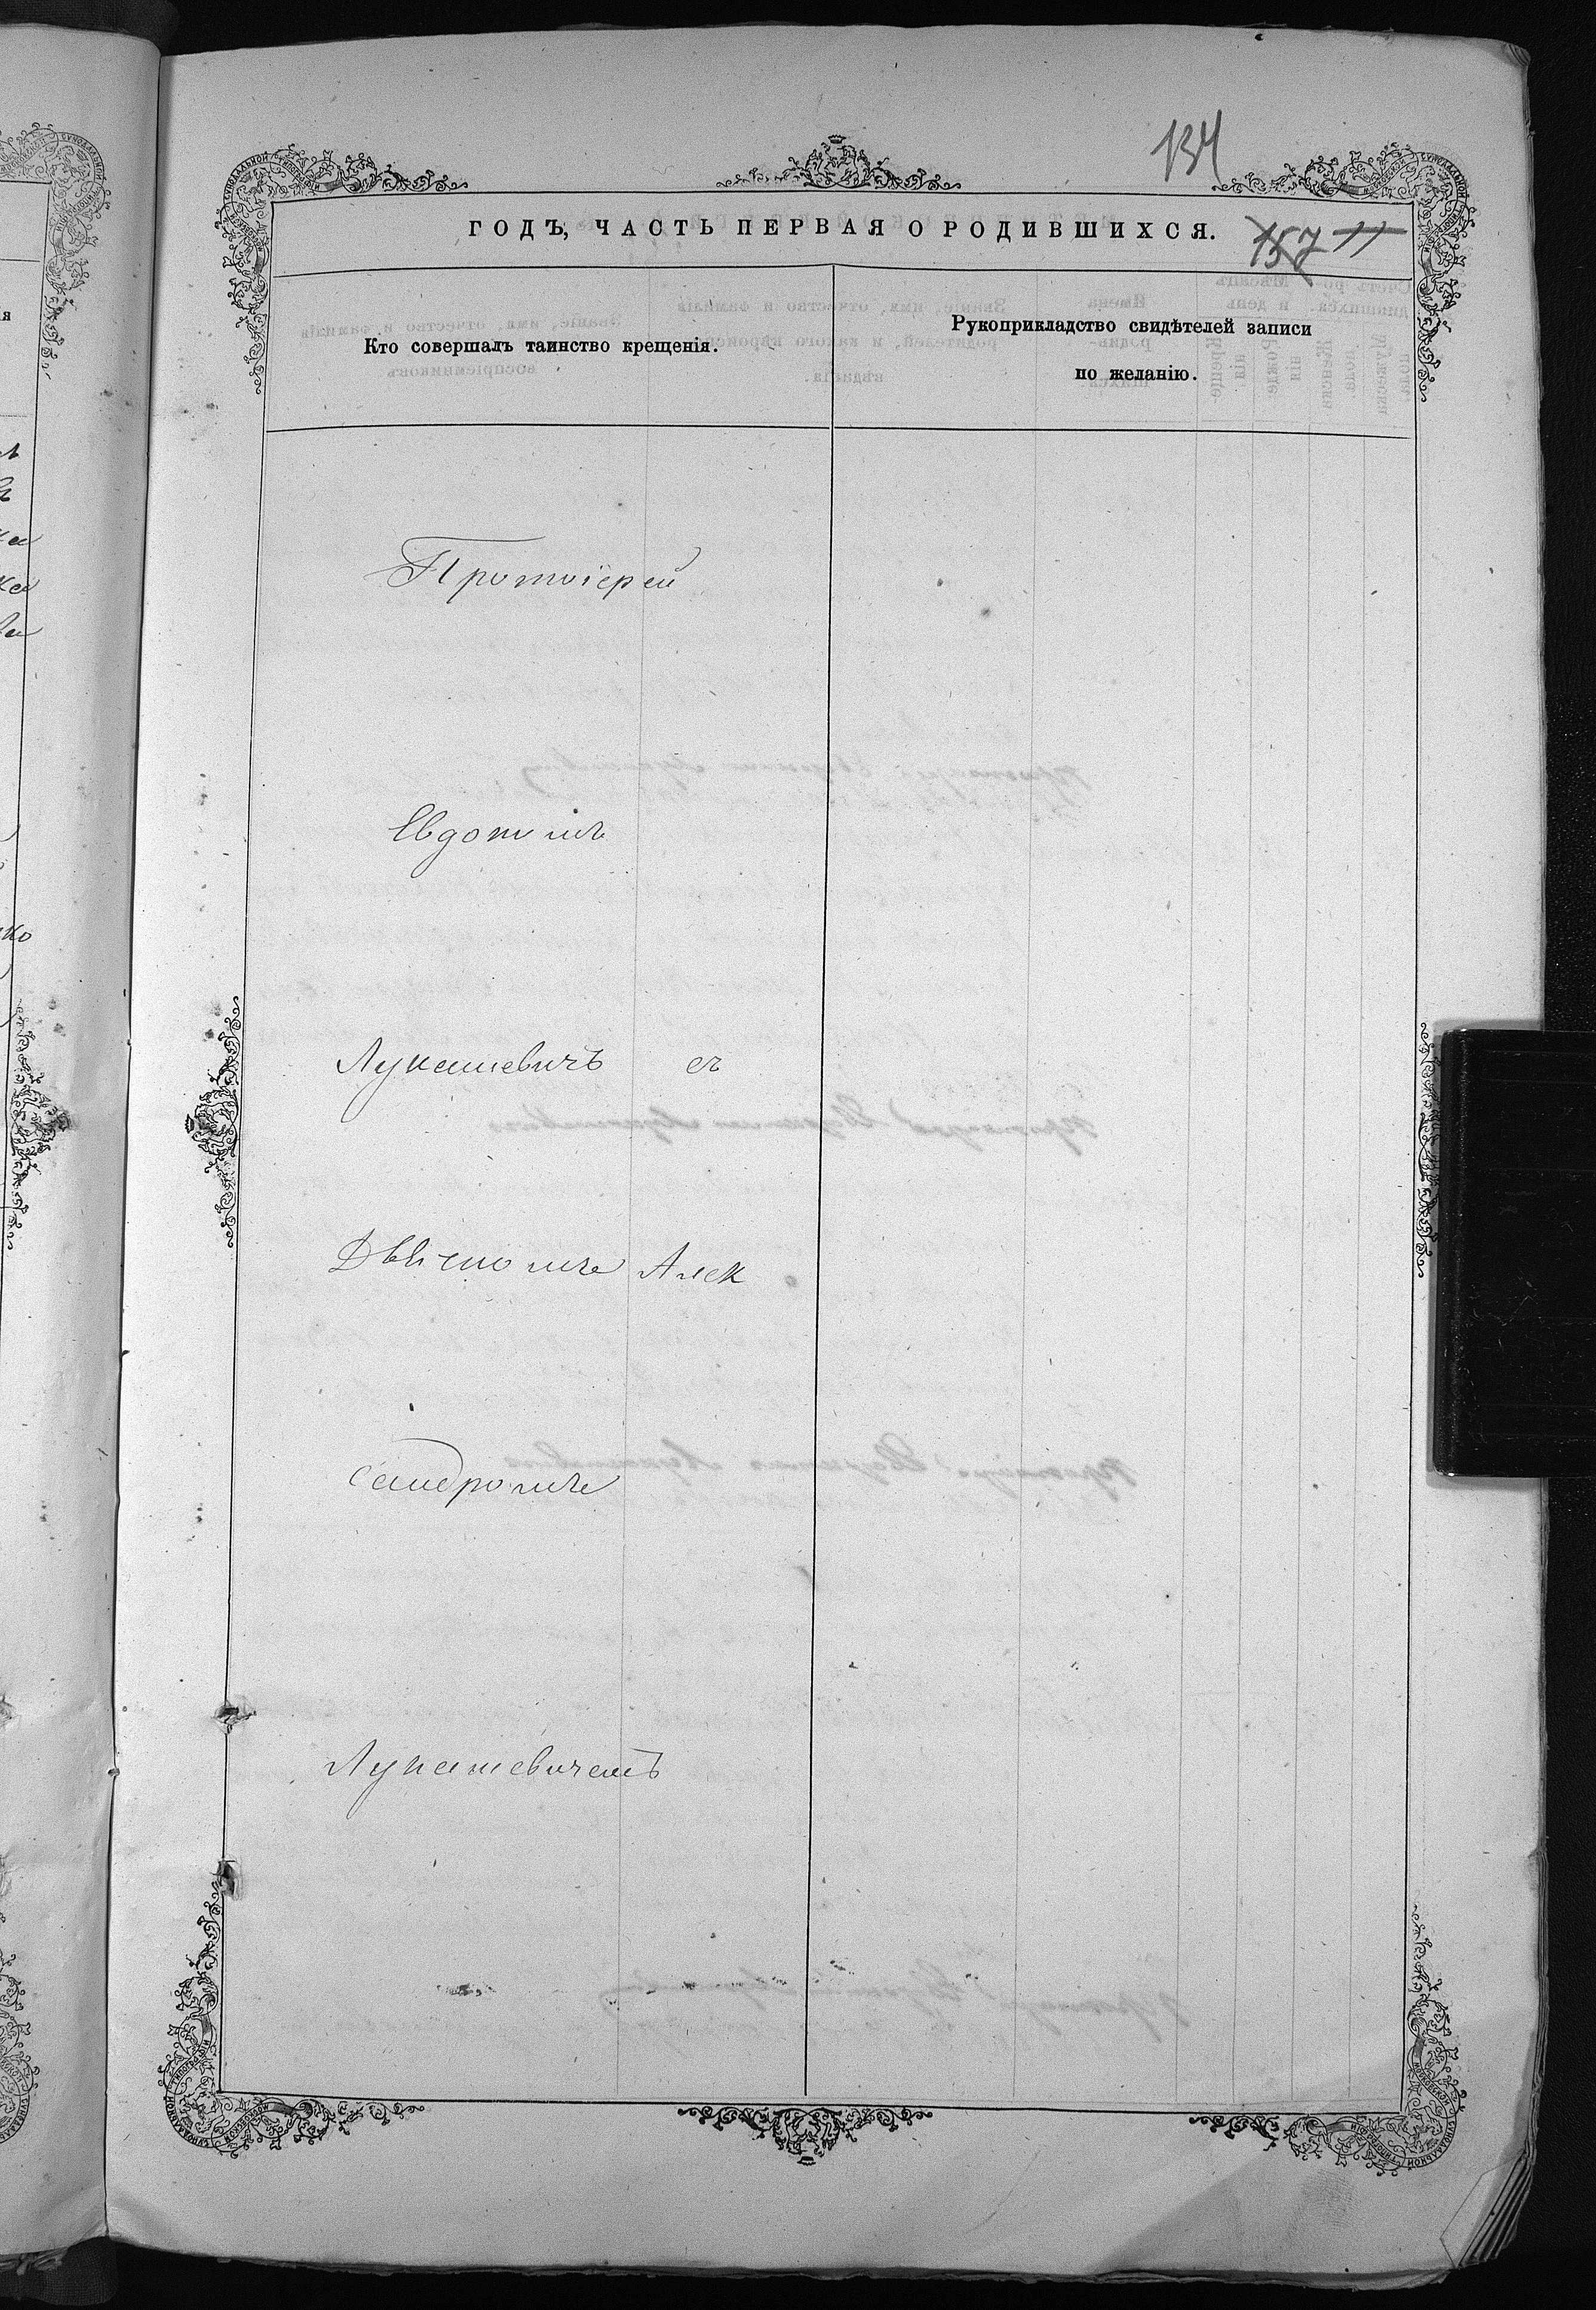 134
ГОДЪ, ЧАСТЬ ПЕРВАЯ О РОДИВШИХСЯ.
157 11
Кто совершалъ таинство крещенія.
Рукоприкладство свидѣтелей записи
по желанію.
Протоіерей
Лукашевичъ съ
Алек
сандромъ
Лукашевичемъ